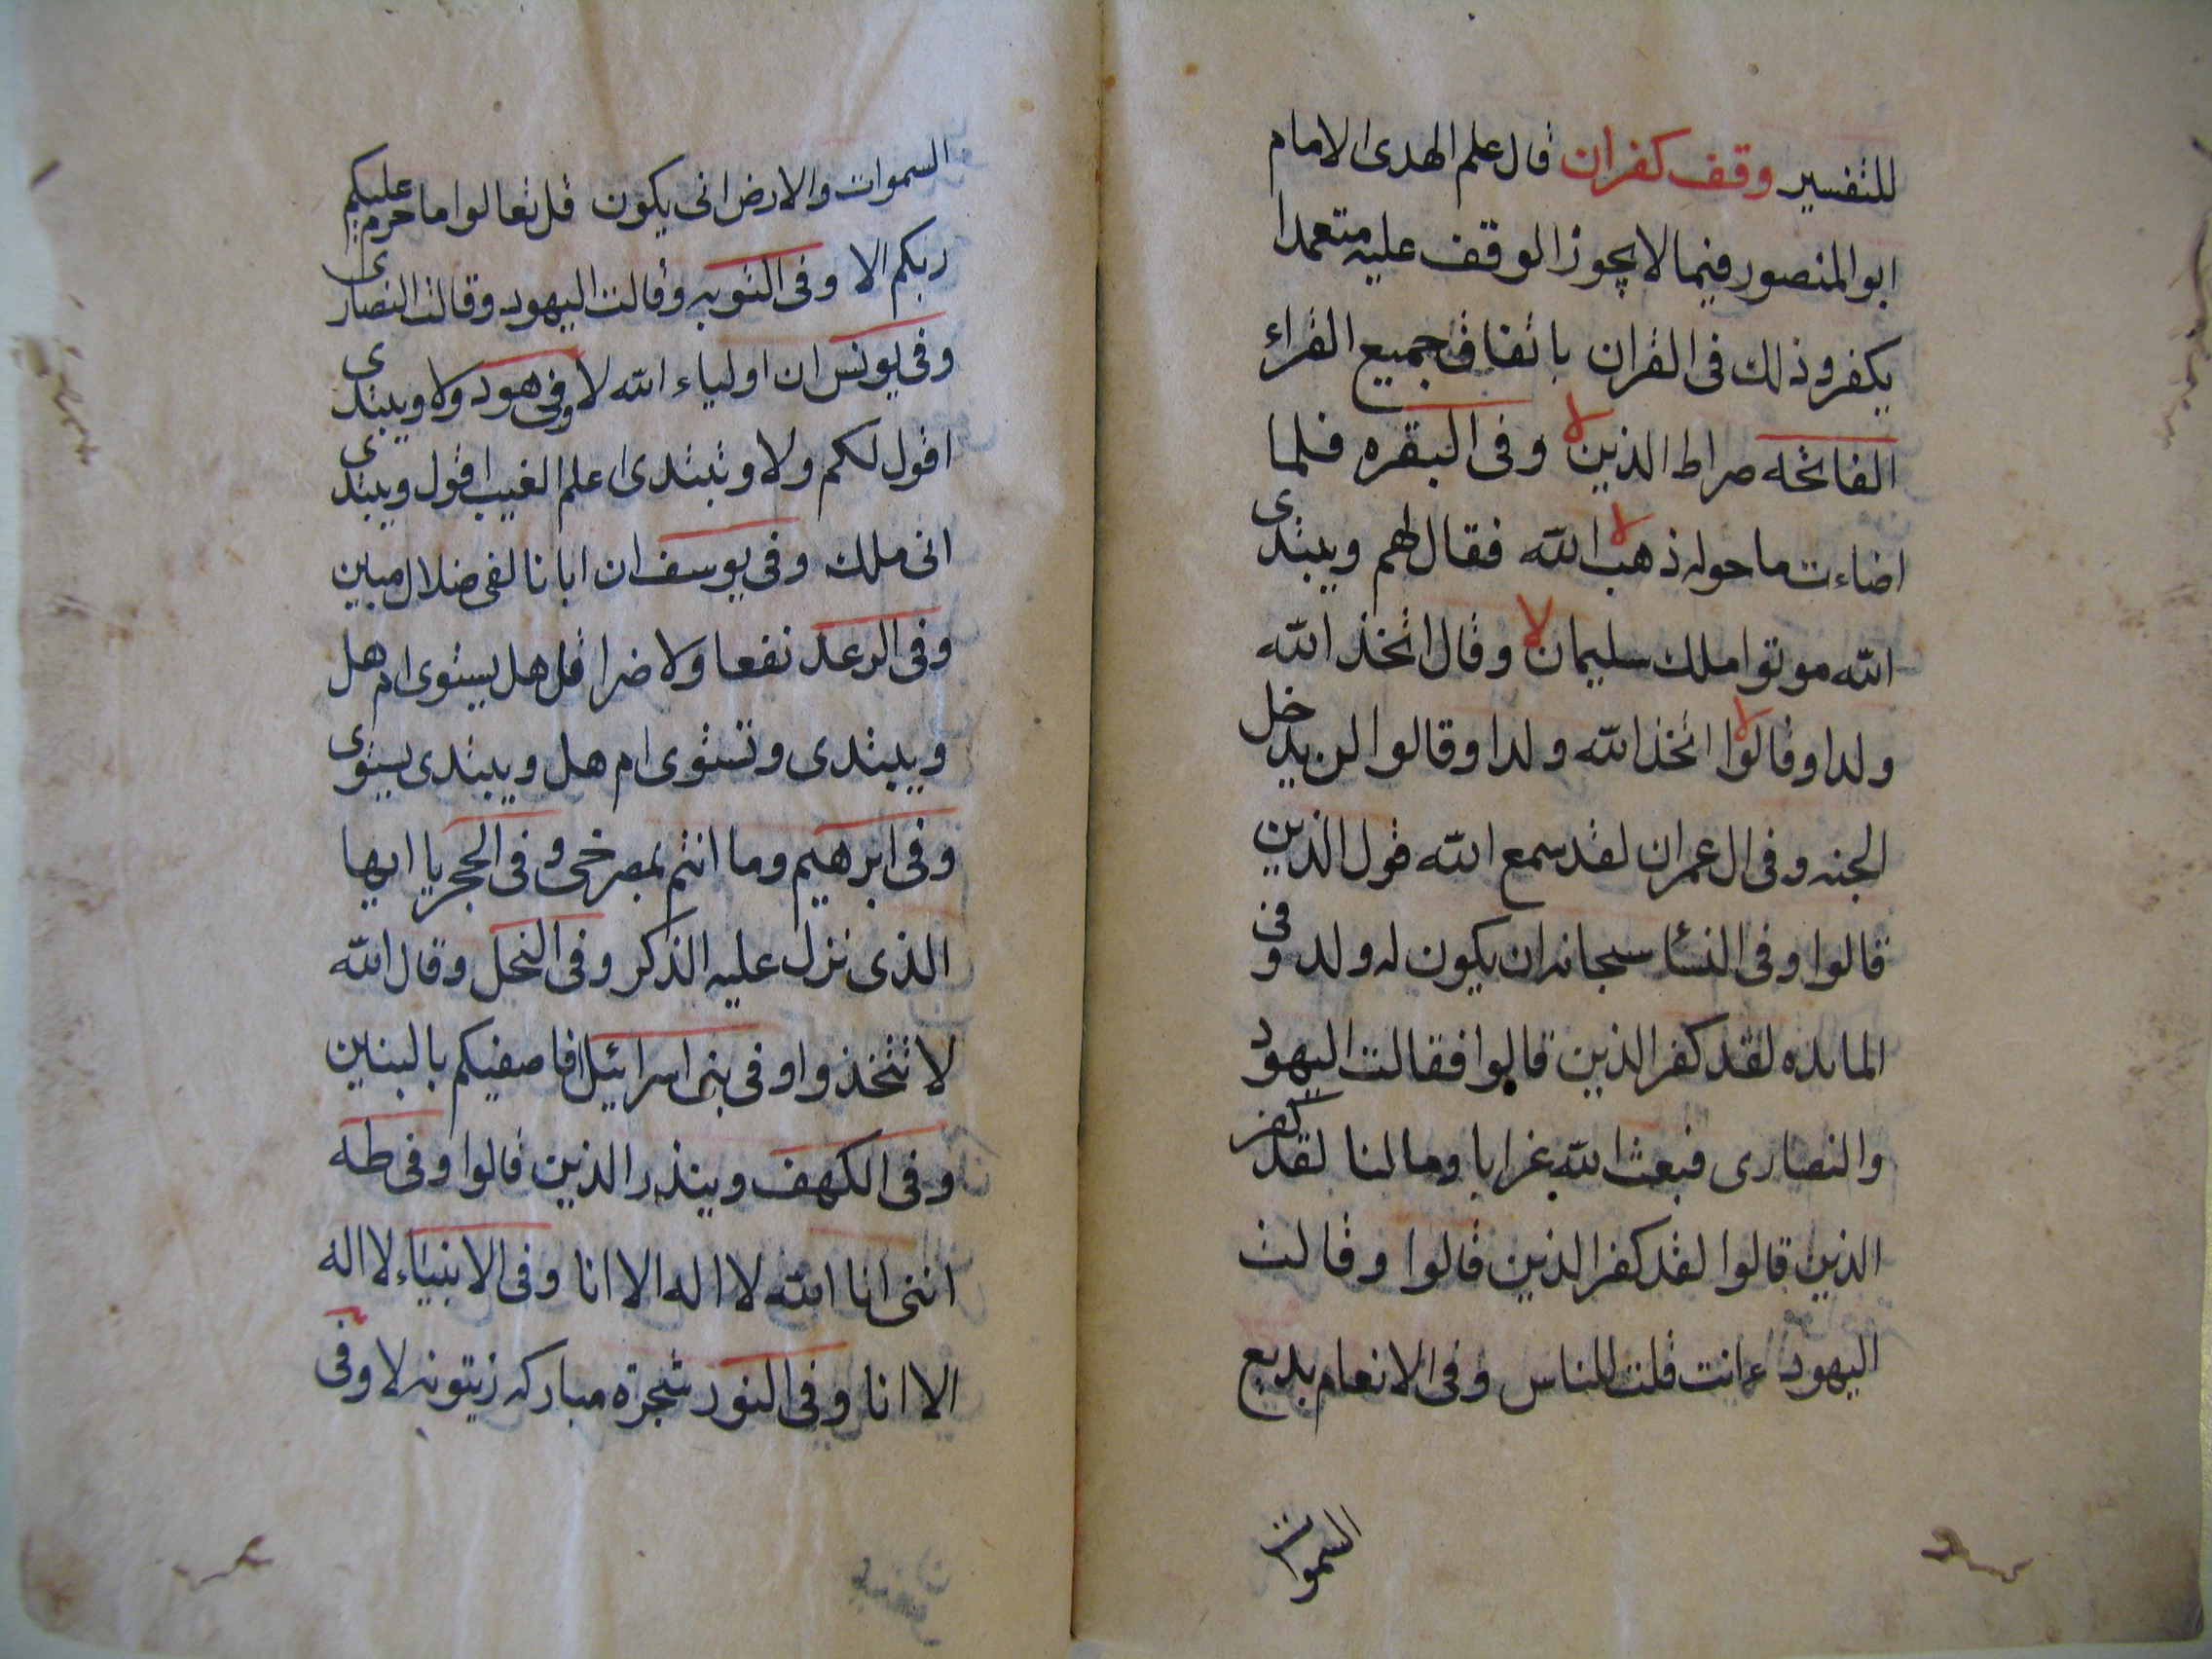 للتفسير وقف كفران قال علم الهدى الامام
ابو المنصور فيما لا يجوز الوقف عليه متعمدا
يكفر وذلك فى القران باتفاق جميع القراء
الفاتحه صراط الذين لا وفى البقره فلما
اضاءت ما حوله ذهب الله لا فقال لهم ويبتدى
الله موتوا ملك سليمان لا وقال اتخذ الله
ولدا وقالوا لا اتخذ الله ولدا وقالوا لن يدخل
الجنه وفى ال عمران لقد سمع الله قول الذين
قالوا وفى النسٔا سبحانه ان يكون له ولد وفى
المائده لقد كفر الذين قالوا فقالت اليهود
والنصارى فبعث الله غرابا وما لنا لقد كفر
الذين قالوا لقد كفر الذين قالوا وقالت
اليهود ءانت قلت للناس وفى الانعام بديع
السموات
السموات والارض انى يكون قل تعالوا ما حرم عليكم
ربكم الا وفى التوبه وقالت اليهود وقالت النصارى
وفى يونس ان اولياء الله لا وفى هود ولا ويبتدى
اقول لكم ولا وتبتدى اعلم الغيب اقول ويبتدى
انى ملك وفى يوسف ان ابانا لفى ضلال مبين
وفى الرعد نفعا ولا ضرا قل هل يستوى ام هل
ويبتدى وتستوى ام هل ويبتدى يستوى
وفى ابرهيم وما انتم بمصرخى وفى الحجر يا ايها
الذى نزل عليه الذكر وفى النحل وقال الله
لا تتخذوا وفى بنى اسرائيل افاصفيكم بالبنين
وفى الكهف وينذر الذين قالوا وفى طه
اننى انا الله لا اله الا انا وفى الانبئاء لا اله
الا انا وفى النور شجرة مباركه زيتونه لا وفى